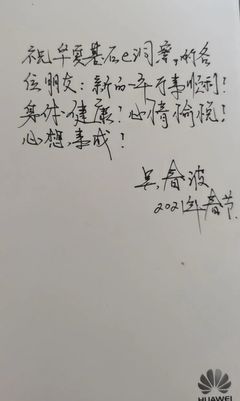 祝华夏基石e洞察的各
位朋友:新的一年万事顺利!
身体健康!心情愉悦!
心想事成!
吴春波
2021年春节
HUAWEI